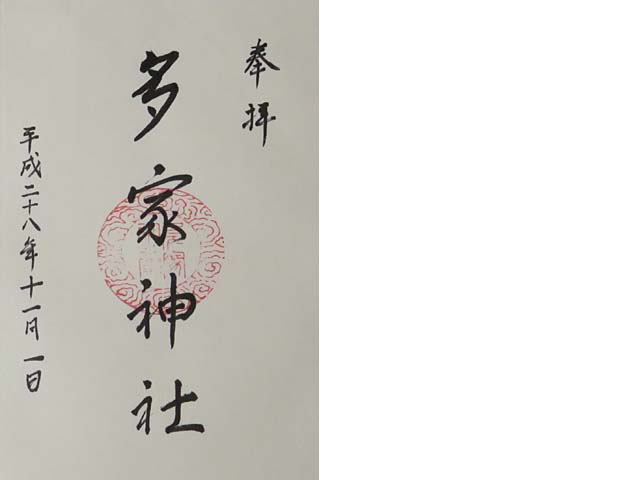 奉拝
多家神社
平成二十八年十一月一日